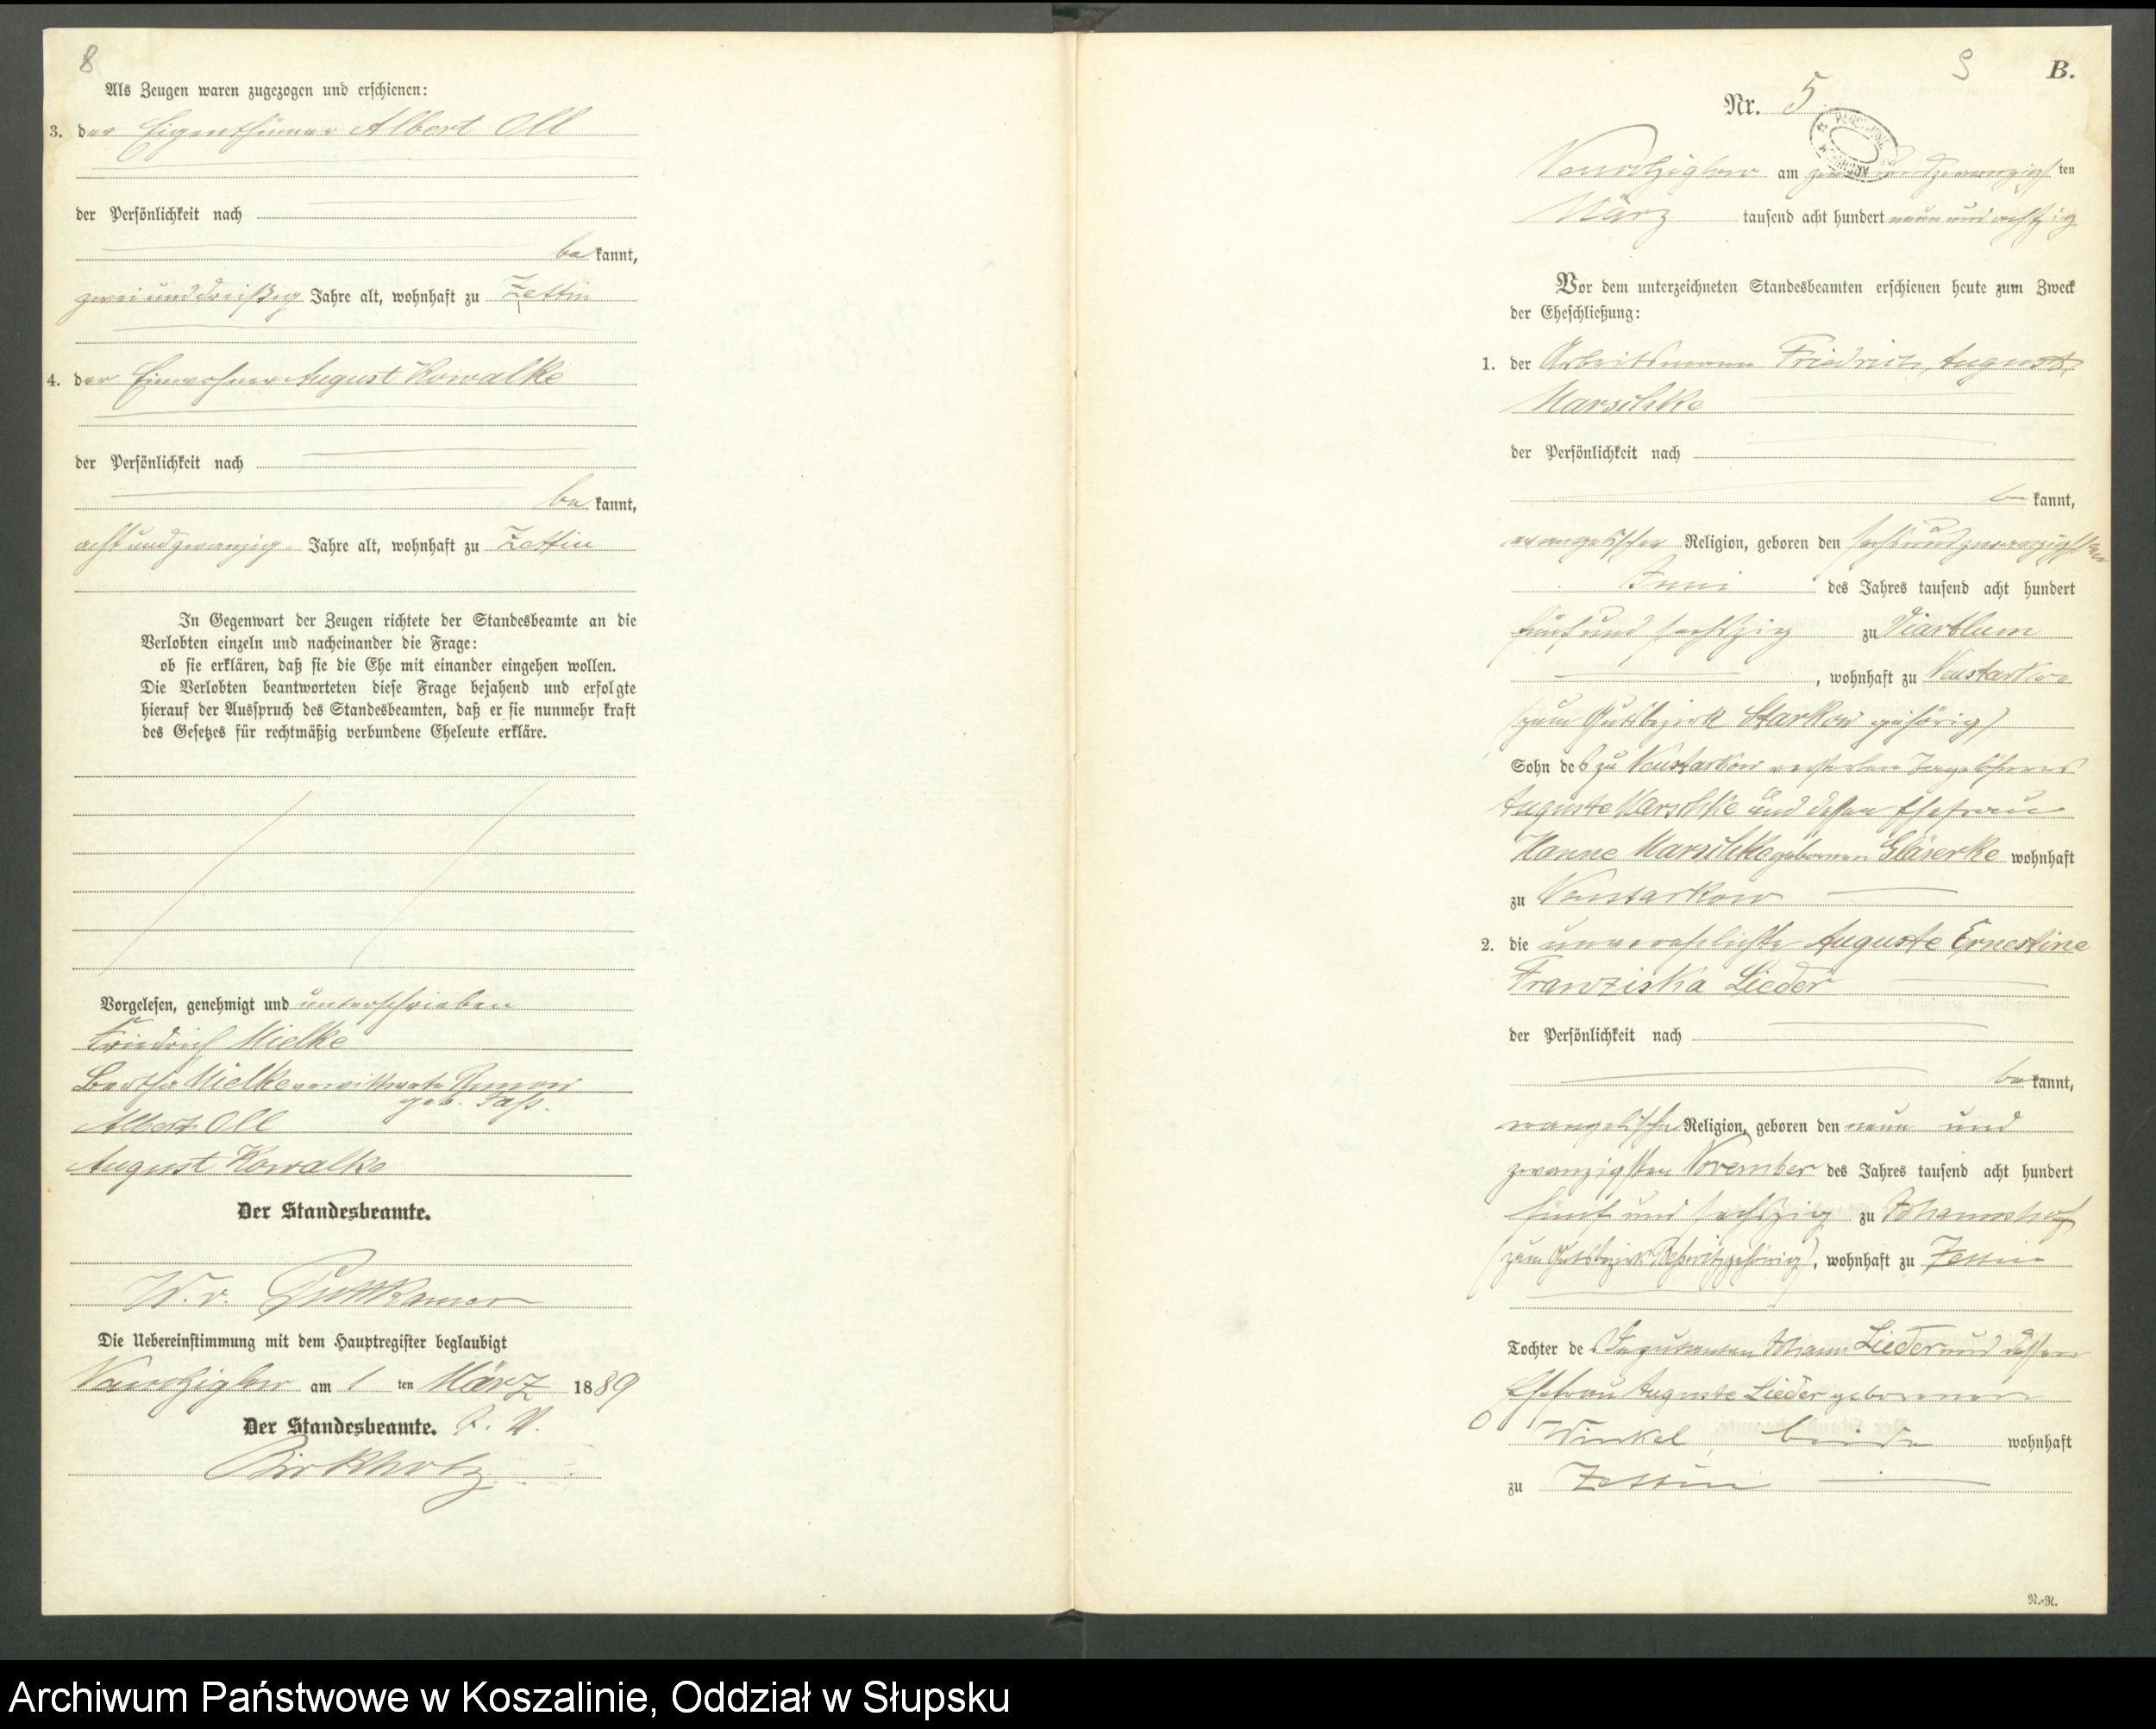 8
Als Zeugen waren zugezogen und erschienen:
3. der Eigenthümer Albert Oll
der Persönlichkeit nach
be kannt,
zwei und dreißig Jahre alt, wohnhaft zu Zettin
4. der Einwohner August Kowalke
der Persönlichkeit nach
be kannt,
acht und zwanzig Jahre alt, wohnhaft zu Zettin
In Gegenwart der Zeugen richtete der Standesbeamte an die
Verlobten einzeln und nacheinander die Frage:
ob sie erklären, daß sie die Ehe mit einander eingehen wollen.
Die Verlobten beantworteten diese Frage bejahend und erfolgte
hierauf der Ausspruch des Standesbeamten, daß er sie nunmehr kraft
des Gesetzes für rechtmäßig verbundene Eheleute erkläre.
Vorgelesen, genehmigt und unterschrieben
Friedrich Mielke
Bertha Mielke verwittwete
geb.
Albert Oll
August Kowalke
Der Standesbeamte.
W. v. Puttkamer
Die Uebereinstimmung mit dem Hauptregister beglaubigt
am 1 ten März 1889
Der Standesbeamte.
Birkholz
B.
Nr. 5.
am zwei und zwanzigsten
März tausend acht hundert neun und achtzig
Vor dem unterzeichneten Standesbeamten erschienen heute zum Zweck
der Eheschließung:
1. der Arbeitsmann Friedrich August
Marschke
der Persönlichkeit nach
be kannt,
evangelischer Religion, geboren den sechs und zwanzigsten
Juni des Jahres tausend acht hundert
fünf und sechszig zu Viartlum
, wohnhaft zu Neustarkow
(zum Gutsbezirk Starkow gehörig)
Sohn des zu Neustarkow verstorbenen Tagelöhners
Auguste Marschke und dessen Ehefrau
Hanne Marschke geborenen Gläserke wohnhaft
zu Neustarkow
2. die unverehelichte Auguste Ernestine
Franziska Lieder
der Persönlichkeit nach
be kannt,
evangelischer Religion, geboren den neun und
zwanzigsten November des Jahres tausend acht hundert
fünf und sechszig zu Johannshof
(zum Gutsbezirk gehörig), wohnhaft zu Zettin
Tochter des Johann Lieder und dessen
Ehefrau Auguste Lieder geborenen
Winkel, beide wohnhaft
zu Zettin
N.-R.
Archiwum Państwowe w Koszalinie, Oddział w Słupsku